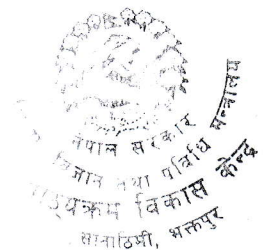 नेपाल सरकार
विज्ञान तथा प्रविधि मन्त्रालय
पाठ्यक्रम विकास केन्द्र
सानोठिमी, भक्तपुर